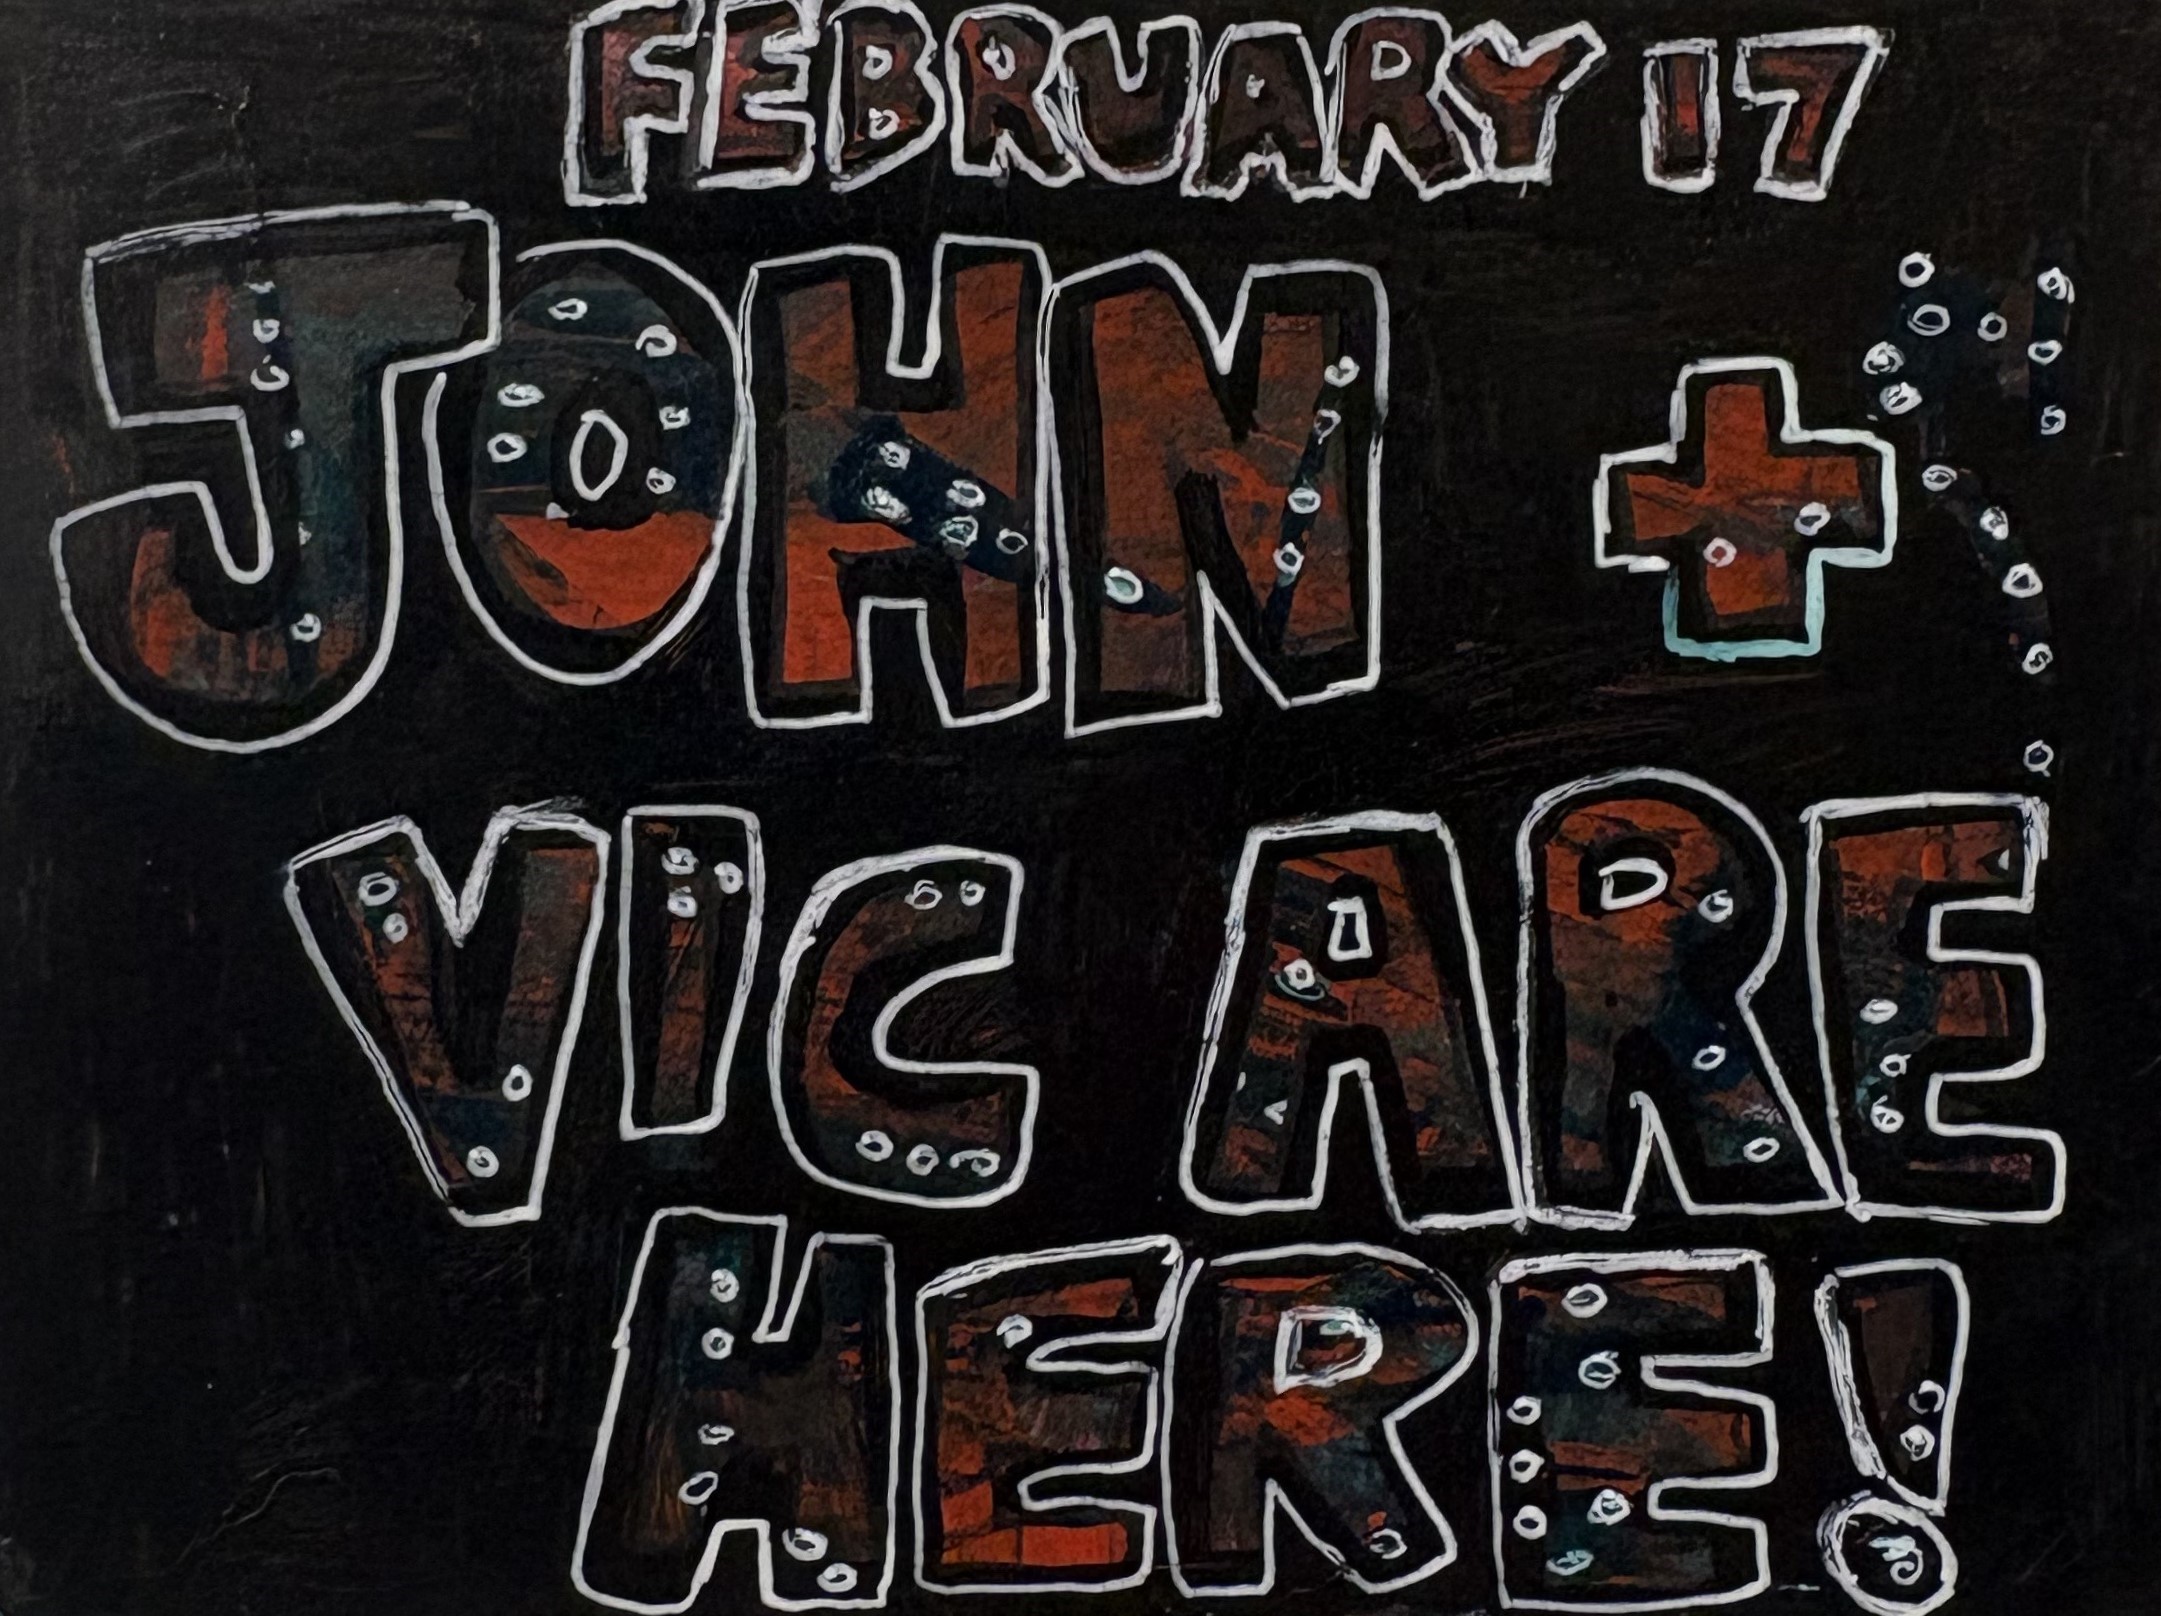 FEBRUARY 17
JOHN +
VIC ARE
HERE!